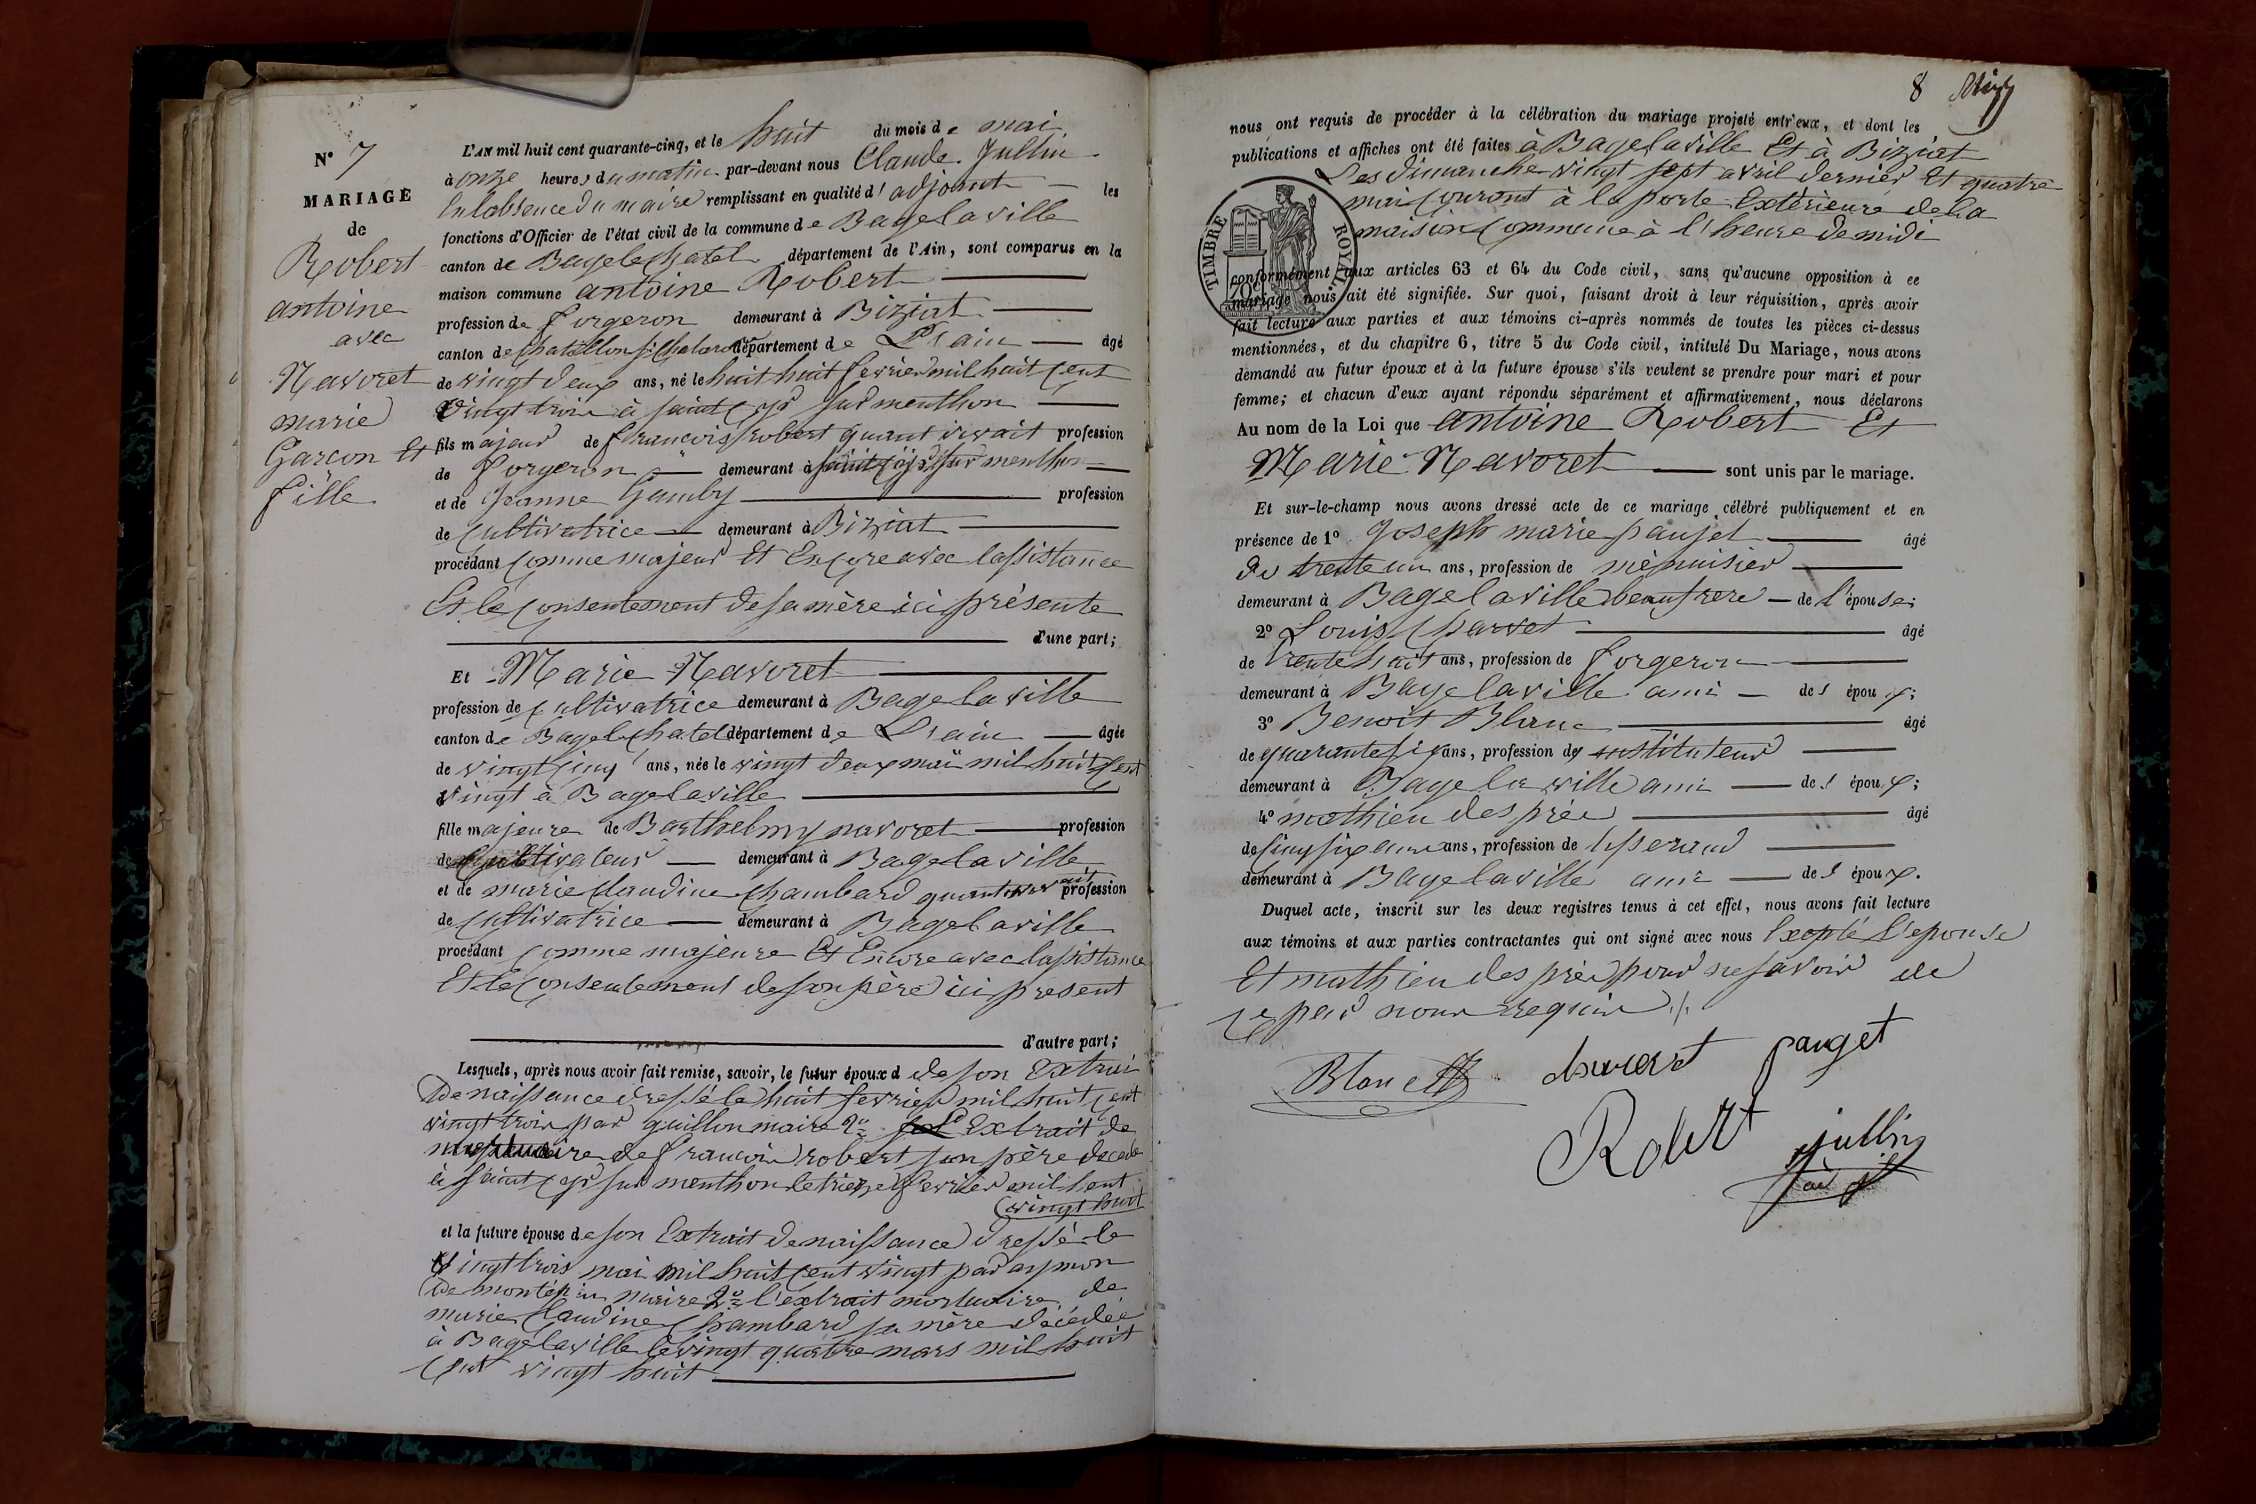 N° 7
MARIAGE
de
Robert
antoine
avec
Navoret
marie
Garçon et
fille
L'AN mil huit cent quarante-cinq, et le huit du mois de mai
à onze heures du matin par-devant nous Claude Jullin
en labsence du maire remplissant en qualité d'adjoint les
fonctions d'Officier de l'état civil de la commune de Bagelaville
canton de Bagelechatel département de l'Ain, sont comparus en la
maison commune antoine Robert
profession de forgeron demeurant à Biziat
canton de Chatillon s. Chalaronne département de L'ain âgé
de vingt deux ans, né le huit huit fevrier mil huit cent
vingt trois à saint cyr sur menthon
fils majeur de francois robert quant vivait profession
de forgeron demeurant à saint cyr sur menthon
et de Jeanne Gamby profession
de cultivatrice demeurant à Biziat
procédant comme majeur et encore avec lassistance
Et le consentement de sa mère ici présente
d'une part;
Et Marie Navoret
profession de cultivatrice demeurant à Bagelaville
canton de Bagelechatel département de L'ain âgée
de vingt cinq ans, née le vingt deux mai mil huit cent
vingt à Bagelaville
fille majeure de Barthelmy navoret profession
de cultivateur demeurant à Bagelaville
et de marie claudine chambard quant vivait profession
de cultivatrice demeurant à Bagelaville
procédant comme majeure Et Encore avec lassistance
Et le consentement de son père ici present
d'autre part;
Lesquels, après nous avoir fait remise, savoir, le futur époux d de son extrai
de naissance dressé le huit fevrier mil huit cent
vingt trois par guillon maire 2° Extrait de
mortuaire de francois robert son père décédé
à saint cyr sur menthon le treize fevrier mil cent
vingt huit
et la future épouse de son Extrait de naissance dressé le
vingt trois mai mil huit cent vingt par aymon
de montépin maire 2° l'extrait mortuaire de
marie claudine chambard sa mère décédée
à Bagélaville le vingt quatre mars mil huit
cent vingt huit
8
nous ont requis de procéder à la célébration du mariage projeté entr'eux, et dont les
publications et affiches ont été faites à Bagelaville Et à Biziat
Les dimanche vingt sept avril dernier Et quatre
mai courant à la porte Extérieure de la
maison commune à l'heure de midi
TIMBRE ROYAL
70c
conformément aux articles 63 et 64 du Code civil, sans qu'aucune opposition à ce
mariage nous ait été signifiée. Sur quoi, faisant droit à leur réquisition, après avoir
fait lecture aux parties et aux témoins ci-après nommés de toutes les pièces ci-dessus
mentionnées, et du chapitre 6, titre 5 du Code civil, intitulé Du Mariage, nous avons
demandé au futur époux et à la future épouse s'ils veulent se prendre pour mari et pour
femme; et chacun d'eux ayant répondu séparément et affirmativement, nous déclarons
Au nom de la Loi que antoine Robert Et
Marie Navoret sont unis par le mariage.
Et sur-le-champ nous avons dressé acte de ce mariage célébré publiquement et en
présence de 1° Joseph marie pauget âgé
de trente un ans, profession de menuisier
demeurant à Bagelaville beaufrere de l'épouse;
2° Louis Charvet âgé
de trente huit ans, profession de forgeron
demeurant à Bagelaville ami de l époux;
3° Benoit Blanc âgé
de quarante six ans, profession d'instituteur
demeurant à Bagelaville ami de l époux;
4° mathieu després âgé
ans, profession de tisserand
demeurant à Bagelaville ami de l époux.
Duquel acte, inscrit sur les deux registres tenus à cet effet, nous avons fait lecture
aux témoins et aux parties contractantes qui ont signé avec nous Excepté l'epouse
Et mathieu després pour ne savoir de
ce par nous requis
Blanc charvet pauget
Robert jullin
adj